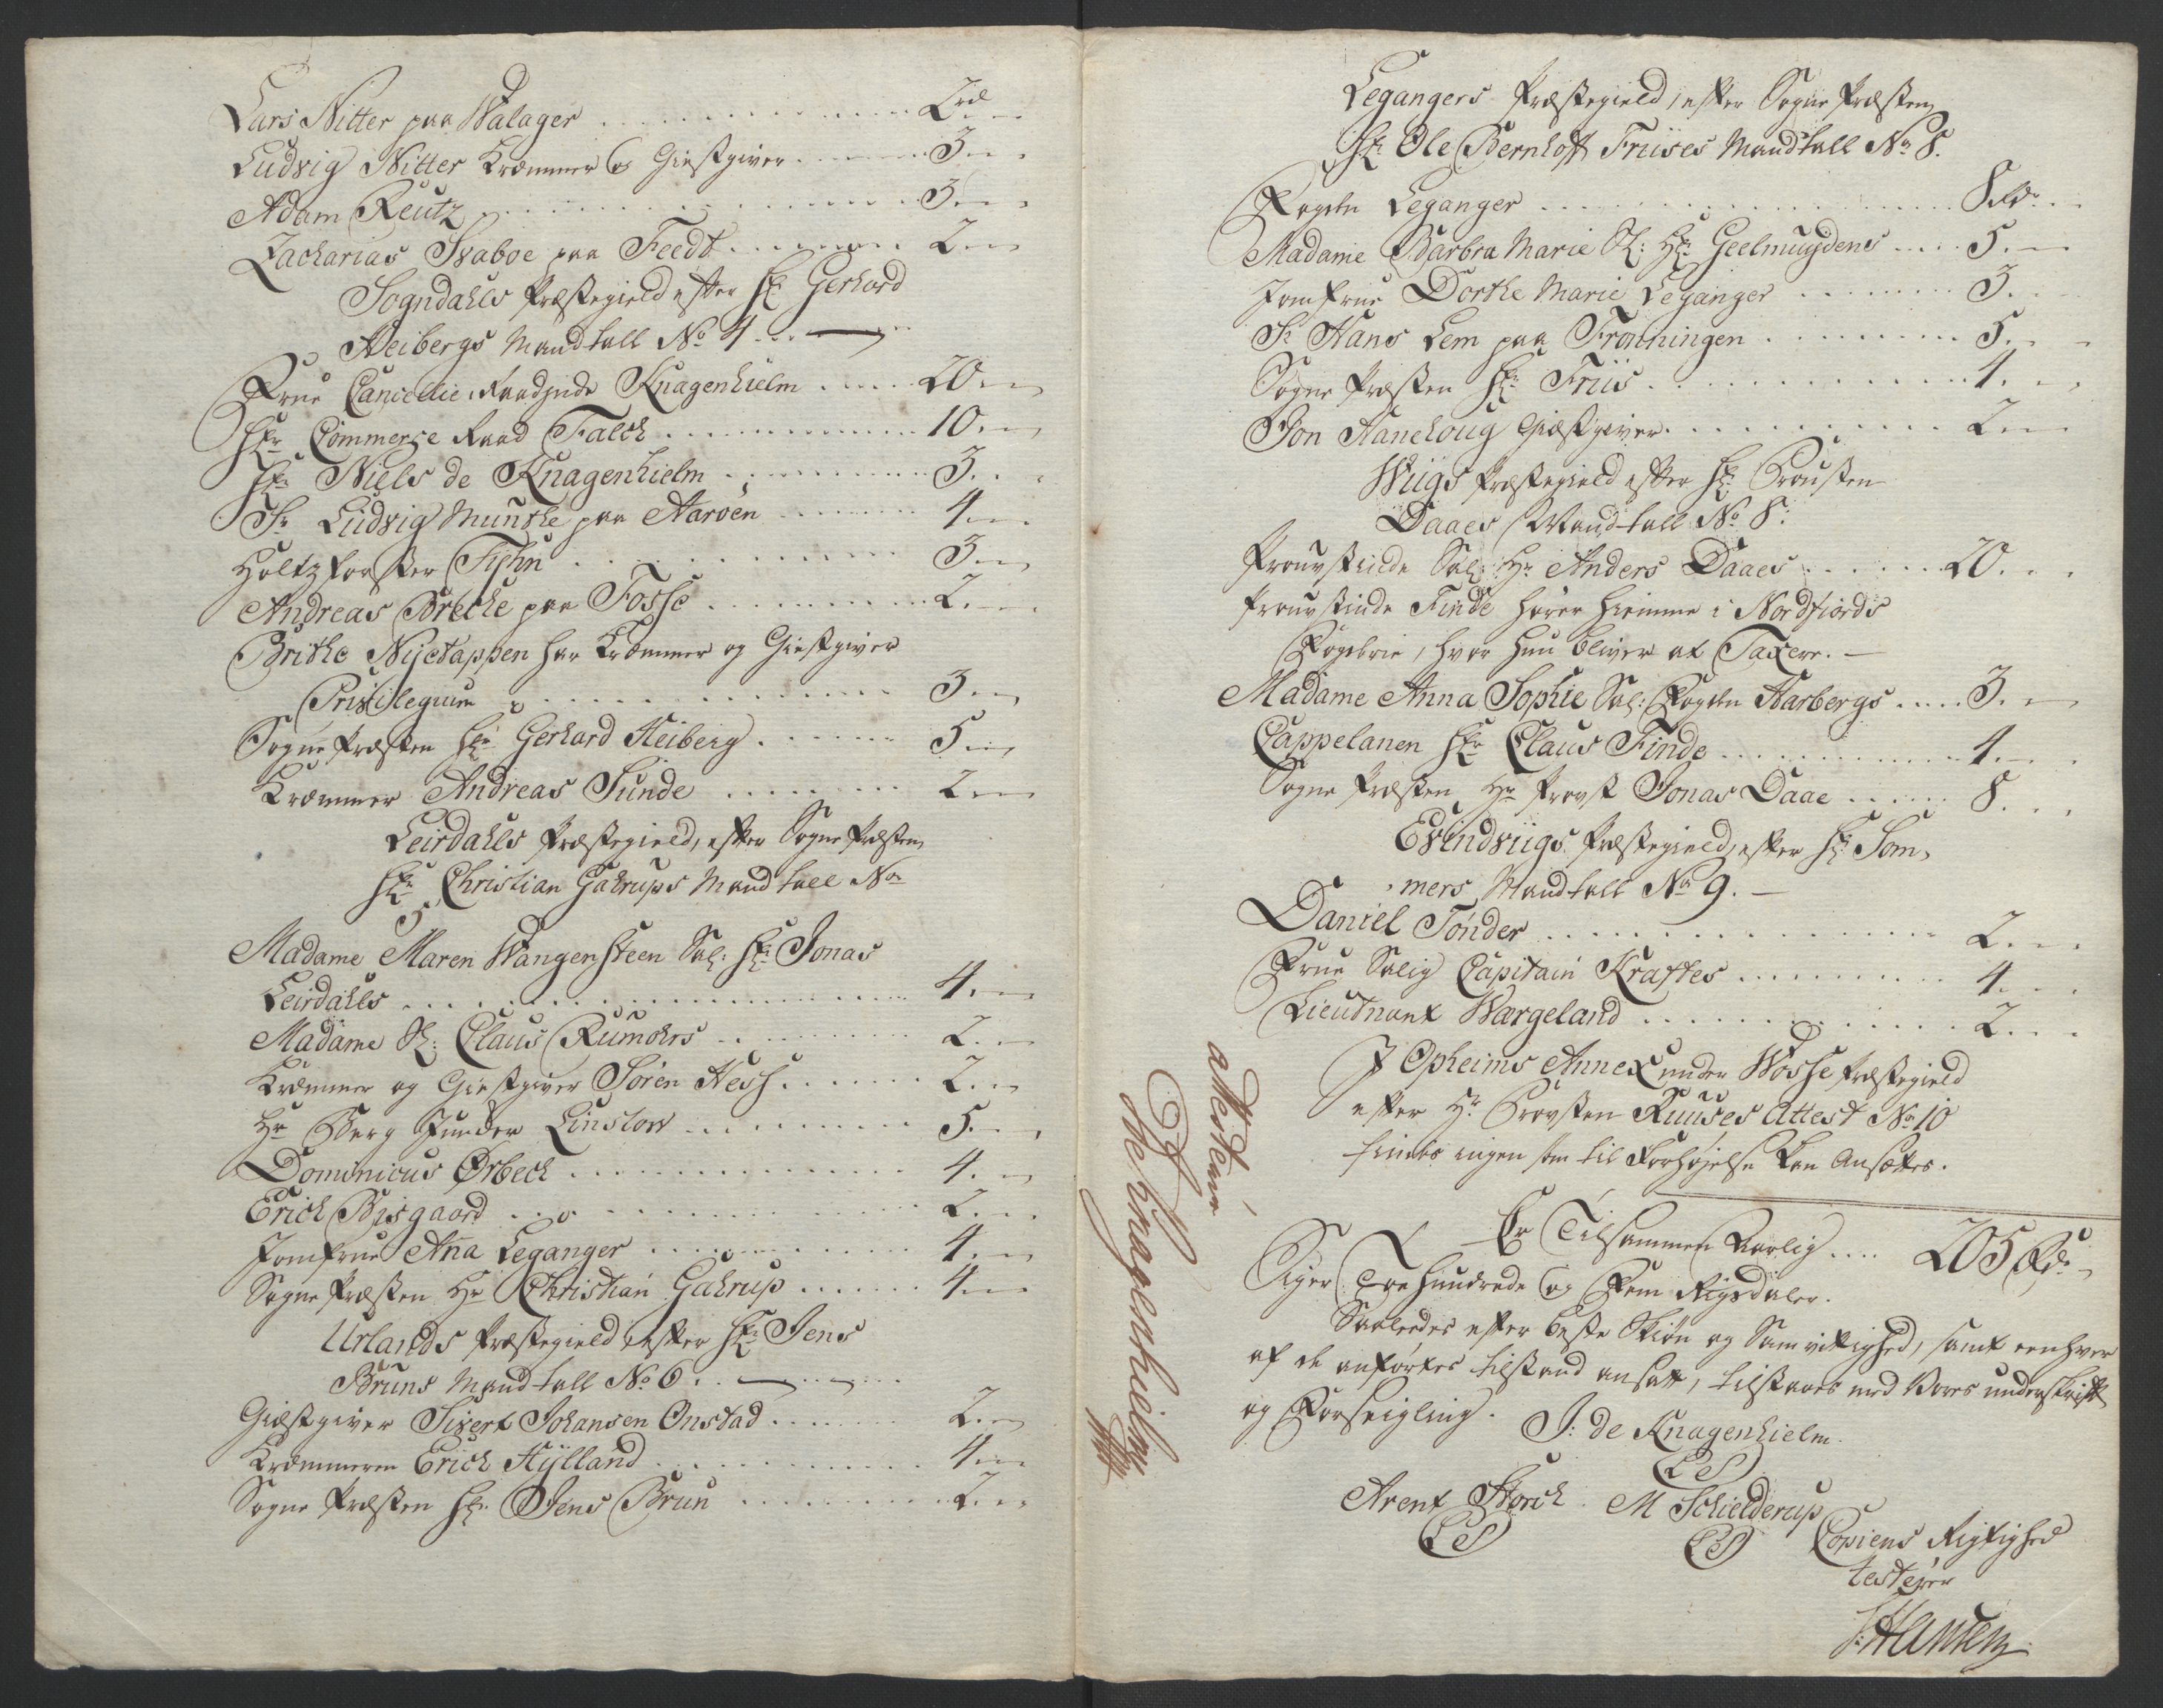 Lars Nitter paa Walager . . . . 2 rd
Ludvig Nitter Kræmmer & Giestgiver . . . . 3
Adam Reutz . . . . 3
Zacharias Svaboe paa Feedt . . . . 2
Sogndahls Præstegield efter Hr Gerhard
Heibergs Mandtall No 4
Frue Cancellie-Raadjnde Knagenhielm . . . . 20
Hr Commerce Raad Falch . . . . 10
Hr Niels de Knagenhielm . . . . 3
Sr Ludvig Munthe paa Aarøen . . . . 4
Holtzforster Tyhn . . . . 3
Andreas Brecke paa Fosse . . . . 2
Brithe Nijetappen har Kræmmer og Giestgiver
Privilegium . . . . 3
Sogne Præsten Hr Gerhard Heiberg . . . . 5
Kræmmer Andreas Sunde . . . . 2
Leirdahls Præstegield, efter Sogne Præsten
Hr Christian Gahrups Mandtall No
5
Madame Maren Wangensteen Sal: Hr Jonas
Leirdahls . . . . 4
Madame Sl: Claus Rumohrs . . . . 2
Kræmmer og Giestgiver Søren Hess . . . . 2
Hr Berg Junker Linstow . . . . 5
Dominicus Ørbech . . . . 4
Erich Bisgaard . . . . 2
Jomfrue Ana Leganger . . . . 4
Sogne Præsten Hr Christian Gahrup . . . . 4
Urlands Præstegield efter Hr Jens
Bruns Mandtall No 6
Giæstgiver Sivert Johansen Onstad . . . . 2
Kræmmeren Erich Hylland . . . . 4
Sogne Præsten Hr Jens Brun . . . . 2
Legangers Præstegield, efter Sogne Præsten
Hr Ole Bernhoft Friises Mandtall No 8.
Fogden Leganger . . . . 8 rd
Madame Barbra Marie Sl: Hr Geelmuydens . . . . 5
Jomfrue Dorthe Marie Leganger . . . . 3
Sr Hans Lem paa Frønningen . . . . 5
Sogne Præsten Hr Friis . . . . 4
Jon Hanehoug Giæstgiver . . . . 2
Wiigs Præstegield efter Hr Prousten
Daaes Mandtall No 8.
Prouvstinde Sal: Hr Anders Daaes . . . . 20
Prouvstinde Finde hører hiemme i Nordfiords
Fogderie, hvor hun bliver at Taxere.
Madame Anna Sophie Sal: Fogden Aarbergs . . . . 3
Cappelanen Hr Claus Finde . . . . 4
Sogne Præsten Hr Provst Jonas Daae . . . . 8
Evindviigs Præstegield, efter Hr Som,
mers Mandtall No 9.
Daniel Tønder . . . . 2
Frue Salig Capitain Kraftes . . . . 4
Lieutnant Wærgeland . . . . 2
I Opheims Annex under Wosse Præstegield
efter Hr Provsten Ruuses Attest No 10
findes ingen som til Forhøjelse kan Ansættes.
Er Tilsammen Aarlig . . . . 205 Rdr
Siger Toe hundrede og Fem Rigsdaler.
Saaledes efter beste Skiøn og Samvittighed, samt eenhver
af de anførtes tilstand ansatt, tilstaaes med Vores underskrift
og Forseigling.
J: de Knagenhielm
LS
Arent Storch
LS
M Schielderup
LS
Copiens Rigtighed
testerer
J: Hansen
Attesterer
J de Knagenhielm